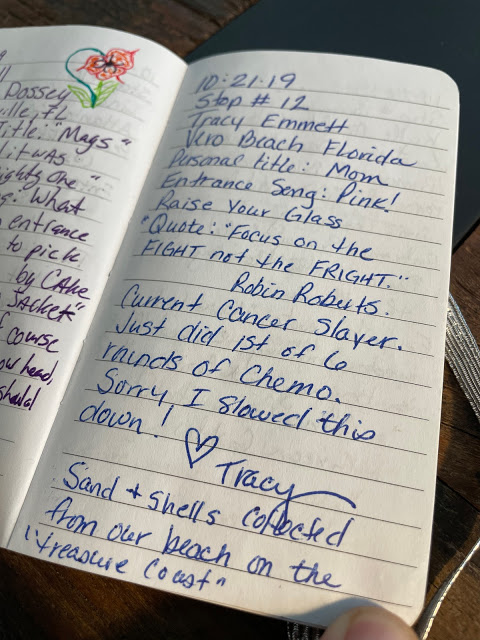 Dossey
ille, FL.
Title: "Mags"
l it was
ighty One"
g: What
entrance
to pick
by CAKe
JACKet"
f course
ow head,
should
10.21.19
Stop # 12
Tracy Emmett
Vero Beach Florida
Personal title: Mom
Entrance Song: Pink!
Raise Your Glass
"Quote: "Focus on the
FIGHT not the FRIGHT."
Robin Roberts.
Current Cancer Slayer.
Just did 1st of 6
rounds of Chemo.
Sorry I slowed this
down!
Tracy
Sand + Shells collected
from our beach on the
"Treasure Coast"